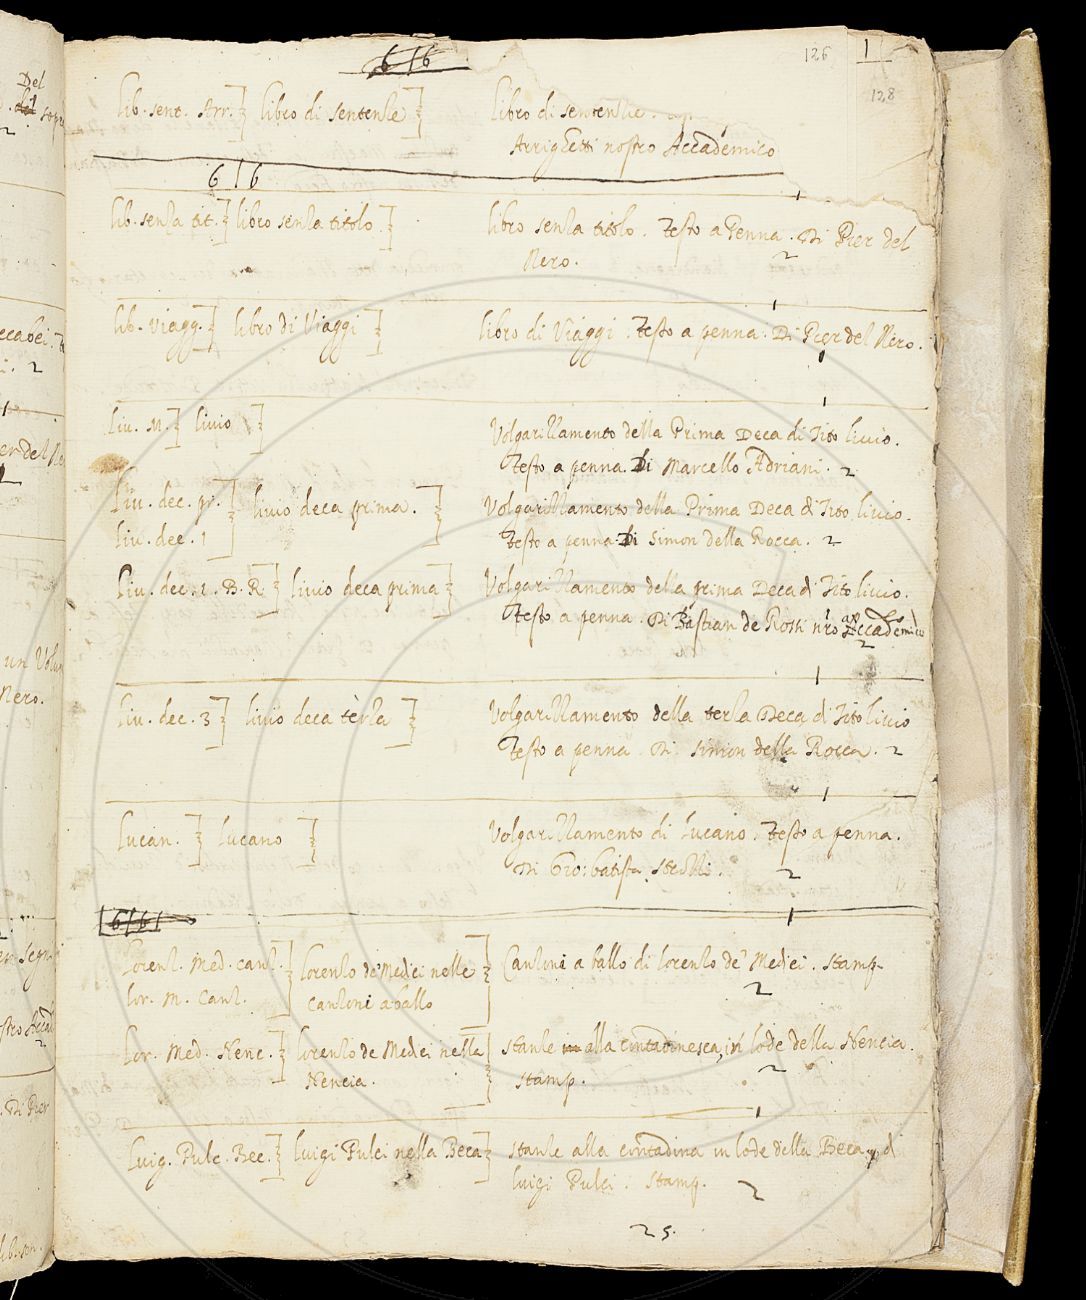 6 | 6
126
128
lib. sent. Arr. libro di sentenze libro di sentenzie.
Arrighetti nostro Accademico
6 | 6
lib. senza tit. libro senza titolo libro senza titolo. Testo a Penna. Di Pier del
Nero. 2
lib. Viagg. libro di Viaggi libro di Viaggi. Testo a penna. Di Pier del Nero.
liu. M. liuio Volgarizzamento della Prima Deca di Tito liuio.
Testo a penna. Di Marcello Adriani. 2
liu. dec. pr. liuio deca prima. Volgarizzamento della Prima Deca di Tito liuio.
liu. dec. 1 Testo a penna. Di Simon della Rocca. 2
liu. dec. 1. B. R. liuio deca prima Volgarizzamento della prima Deca di Tito liuio.
Testo a penna. Di Bastian de Rossi nro Accademico
2
liu. dec. 3 liuio deca tèrza Volgarizzamento della terza Deca di Tito liuio
Testo a penna. Di Simon della Rocca. 2
lucan. lucano Volgarizzamento di lucano. Testo a penna.
Di Gio: batista 2
6 | 6 |
lorenz. Med. canz. lorenzo de' Medici nelle Canzoni a ballo di lorenzo de' Medici. stamp.
lor. M. canz. canzoni a ballo 2
lor. Med. Nenc. lorenzo de Medici nella stanze alla contadinesca, in lode della Nencia.
Nencia. stamp. 2
luig. Pulc. Bec. luigi Pulci nella Beca stanze alla contadina in lode della Beca, di
luigi Pulci. stamp. 2
25.
Del
sopra
2
2
un Volu
Nero.
Di Pier